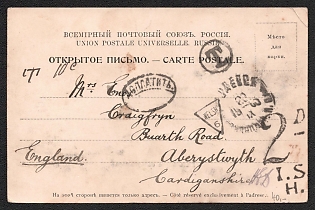 ВСЕМІРНЫЙ ПОЧТОВЫЙ СОЮЗЪ. РОССІЯ.
UNION POSTALE UNIVERSELLE. RUSSIE.
Мѣсто
для
марки.
ОТКРЫТОЕ ПИСЬМО. — CARTE POSTALE.
10c
Mrs
ДОПЛАТИТЬ
Craigfryn
Buarth Road
England.
Aberystwyth
Cardiganshire
2
I.S
H.
На этой сторонѣ пишется только адресъ. — Côté réservé exclusivement à l'adresse.